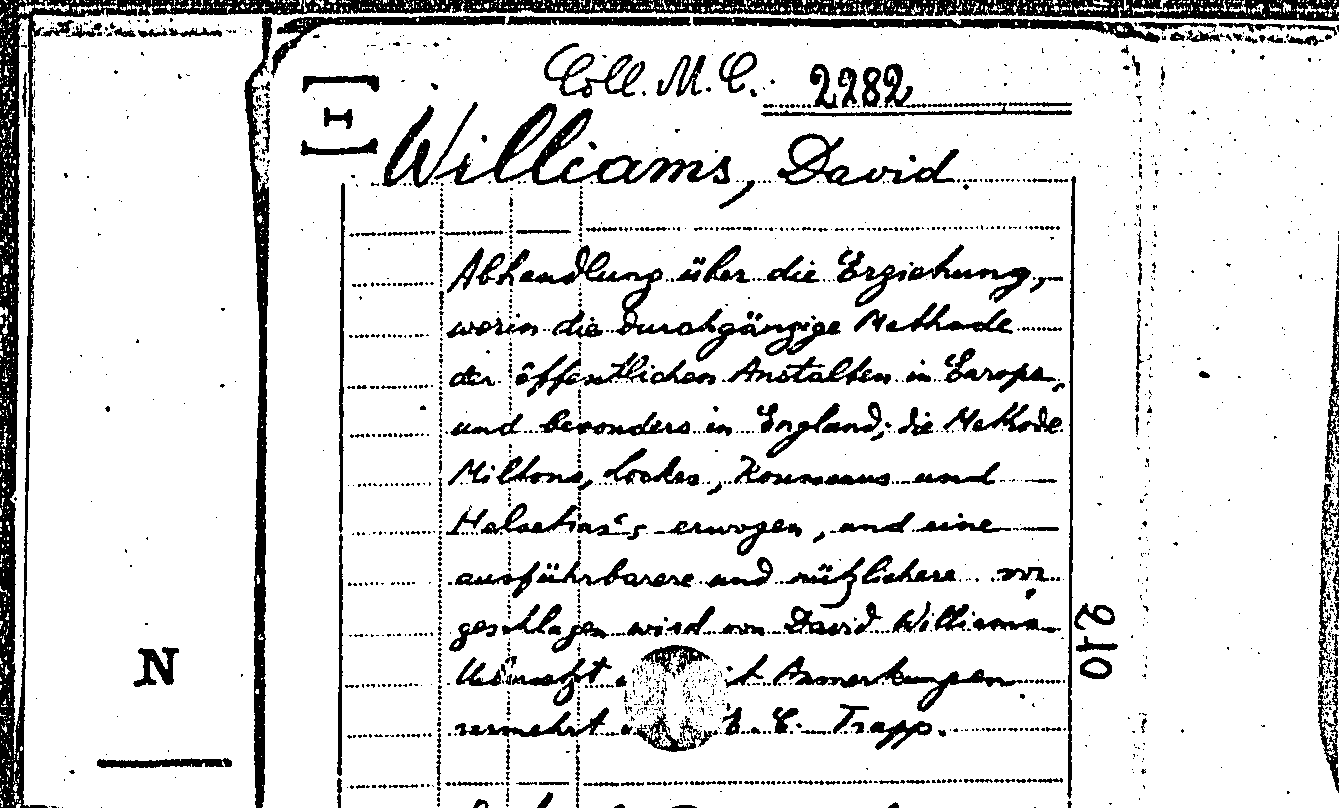 Coll. M. C. 2282
[I]
Williams, David.
Abhandlung über die Erziehung,
worin die durchgängige Methode
der öffentlichen Anstalten in Europa,
und besonders in England; die Methode
Miltons, Lockes, Rousseaus und
Helvetius's, erwogen, und eine
ausführbarere und nützlichere vor
geschlagen wird von David Williams.
Uebersetzt Anmerkungen
vermehrt E. C. Trapp.
N
210